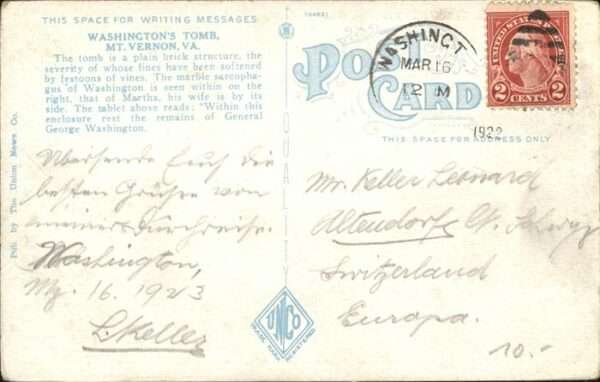 THIS SPACE FOR WRITING MESSAGES
WASHINGTON'S TOMB,
MT. VERNON, VA.
The tomb is a plain brick structure, the
severity of whose lines have been softened
by festoons of vines. The marble sarcopha-
gus of Washington is seen within on the
right, that of Martha, his wife is by its
side. The tablet above reads: "Within this
enclosure rest the remains of General
George Washington.
Pub. by The Union News Co.
Übersende Euch die
besten Grüsse von
meiner Durchreise.
Washington,
Mz. 16. 1923
L. Keller
UNCO
POST CARD
WASHINGT
MAR 16
12 M
UNITED STATES POSTAGE
2 CENTS 2
1922
THIS SPACE FOR ADDRESS ONLY
Mr. Keller Leonard
Altendorf Ct. Schwyz
Switzerland
Europa.
10.-